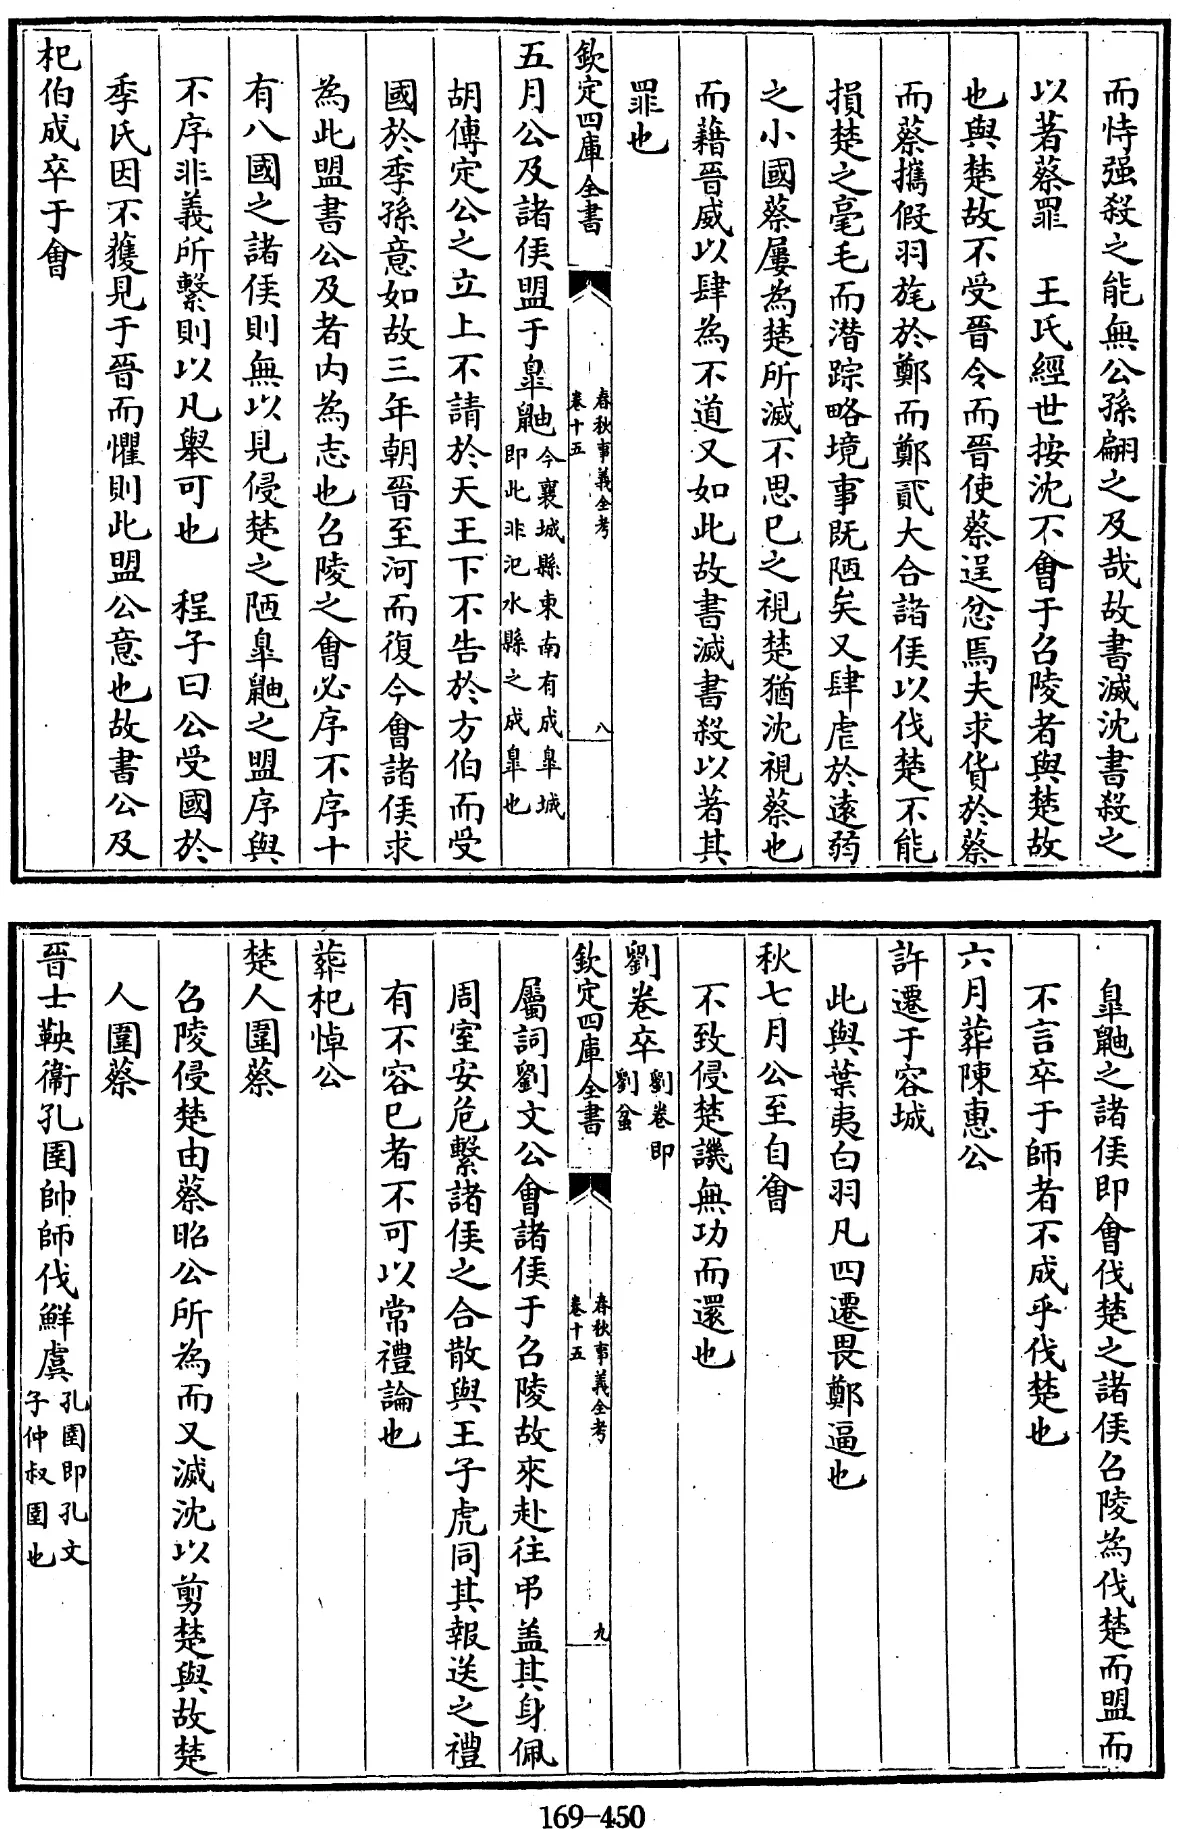 而恃强殺之能無公孫翩之及哉故書滅沈書殺之
以著蔡罪　王氏經世按沈不會于召陵者與楚故
也與楚故不受晉令而晉使蔡逞忿焉夫求貨於蔡
而蔡攜假羽旄於鄭而鄭貳大合諸侯以伐楚不能
損楚之毫毛而潜踪略境事既陋矣又肆虐於遠弱
之小國蔡屢為楚所滅不思已之視楚猶沈視蔡也
而藉晉威以肆為不道又如此故書滅書殺以著其
罪也
欽定四庫全書
春秋事義全考
卷十五
八
五月公及諸侯盟于臯鼬今襄城縣東南有成臯城
即此非汜水縣之成臯也
胡傳定公之立上不請於天王下不告於方伯而受
國於季孫意如故三年朝晉至河而復今會諸侯求
為此盟書公及者内為志也召陵之會必序不序十
有八國之諸侯則無以見侵楚之陋臯鼬之盟序與
不序非義所繫則以凡舉可也　程子曰公受國於
季氏因不獲見于晉而懼則此盟公意也故書公及
杞伯成卒于會
臯鼬之諸侯即會伐楚之諸侯召陵為伐楚而盟而
不言卒于師者不成乎伐楚也
六月葬陳惠公
許遷于容城
此與葉夷白羽凡四遷畏鄭逼也
秋七月公至自會
不致侵楚譏無功而還也
劉卷卒劉卷即
劉蚠
欽定四庫全書
春秋事義全考
卷十五
九
屬詞劉文公會諸侯于召陵故來赴往弔盖其身佩
周室安危繫諸侯之合散與王子虎同其報送之禮
有不容已者不可以常禮論也
葬杞悼公
楚人圍蔡
召陵侵楚由蔡昭公所為而又滅沈以剪楚與故楚
人圍蔡
晉士鞅衛孔圉帥師伐鮮虞孔圉即孔文
子仲叔圉也
169-450